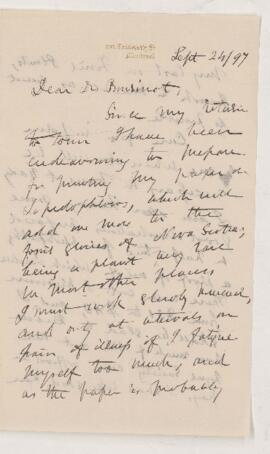 Sept 24/97
Dear Dr Bourinot,
Since my return
to town I have been
endeavouring to prepare
for printing my paper on
Lepidophloios, which will
add one more to the
fossil glories of Nova Scotia;
being a plant very rare
in most other places
I must work slowly however,
and only at intervals on
pain of illness if I fatigue
myself too much, and
as the paper is probably